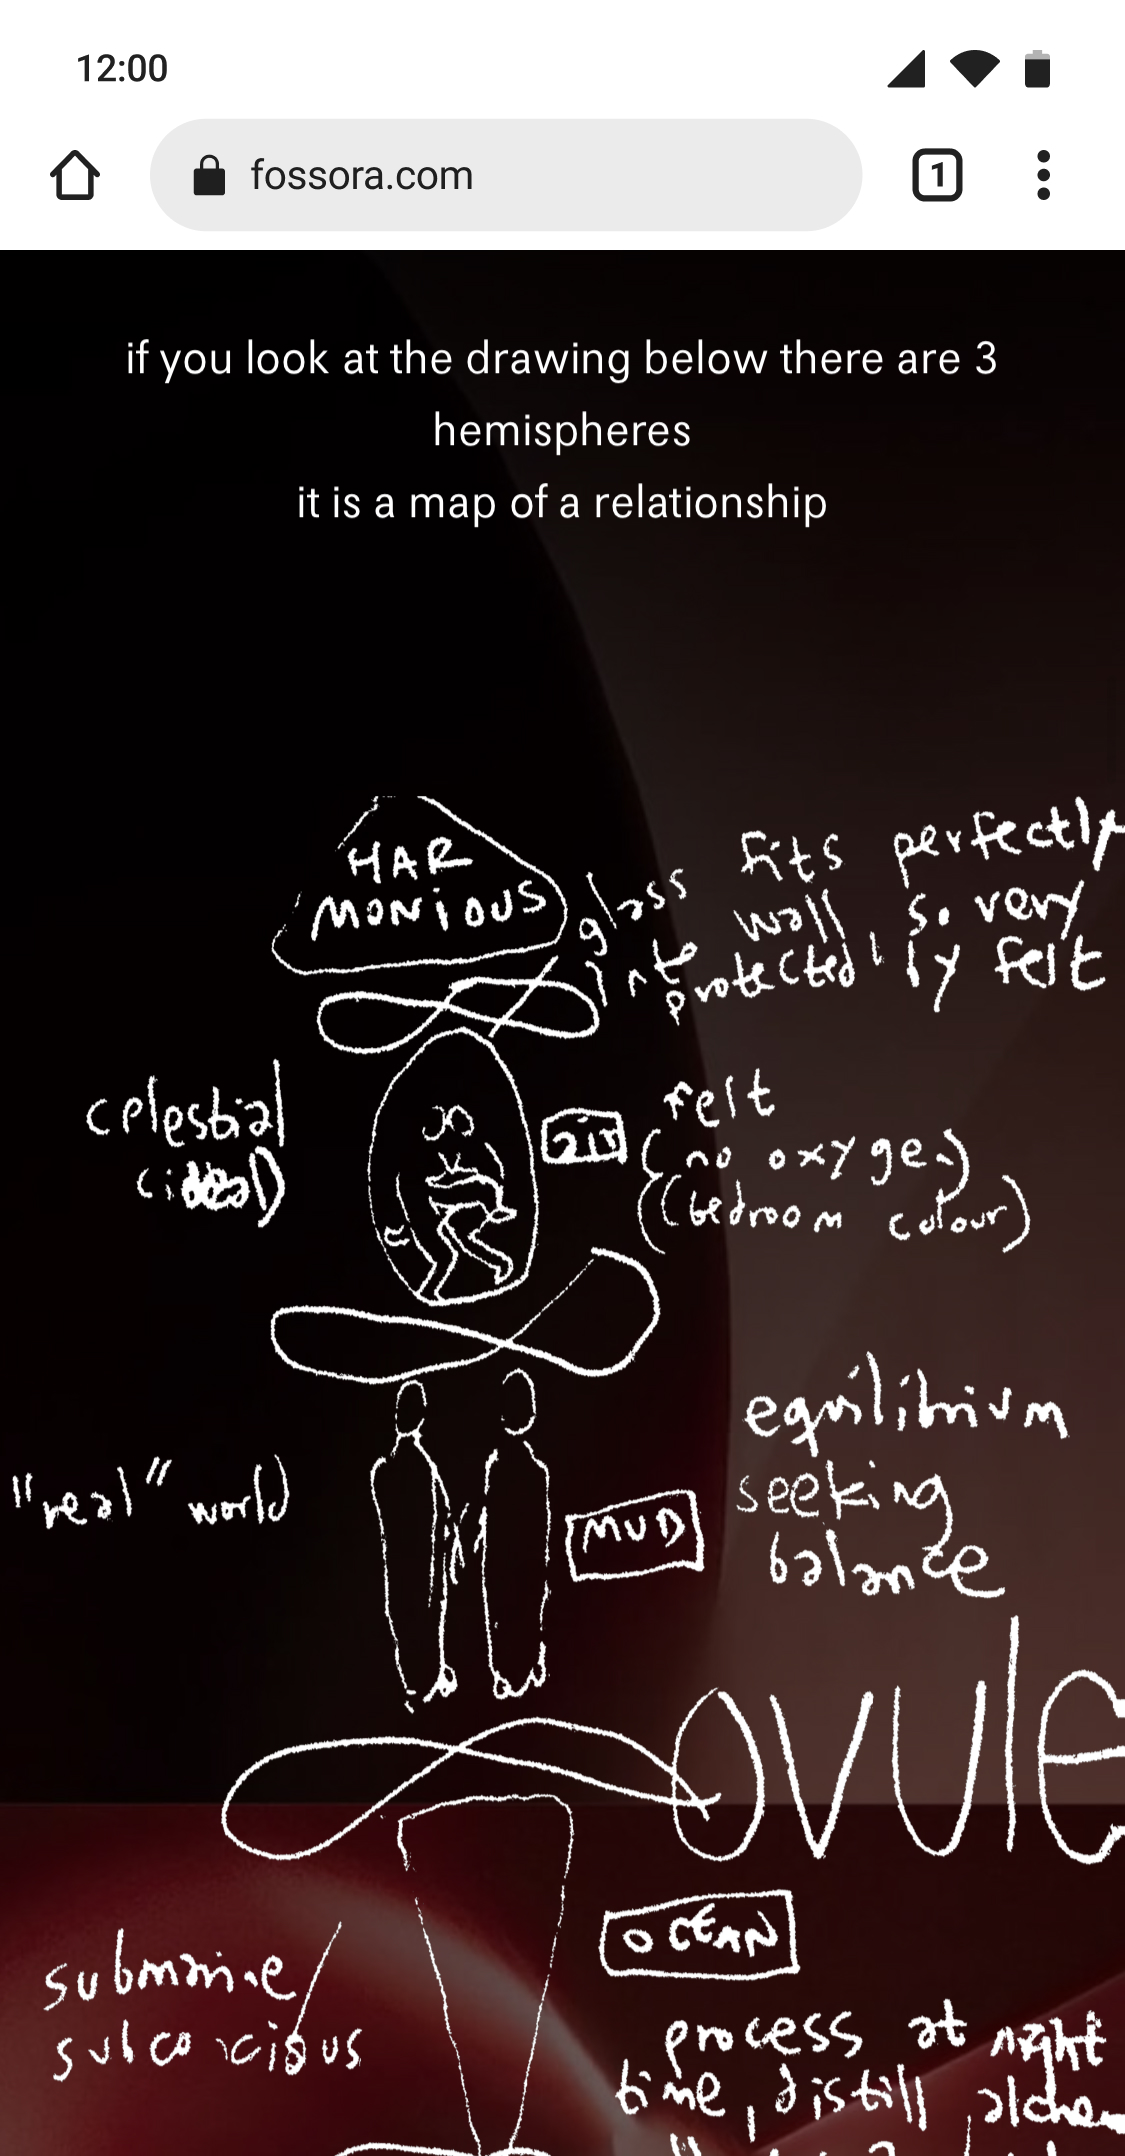 12:00
fossora.com
1
if you look at the drawing below there are 3
hemispheres
it is a map of a relationship
HAR
MONiOUS
glass fits perfectly
into wall so very
protected by felt
celestial
(ideal)
air
felt
(no oxygen)
((bedroom colour)
"real" world
MUD
equilibrium
seeking
balance
ovule
OCEAN
submarine/
process at right
time, distill,